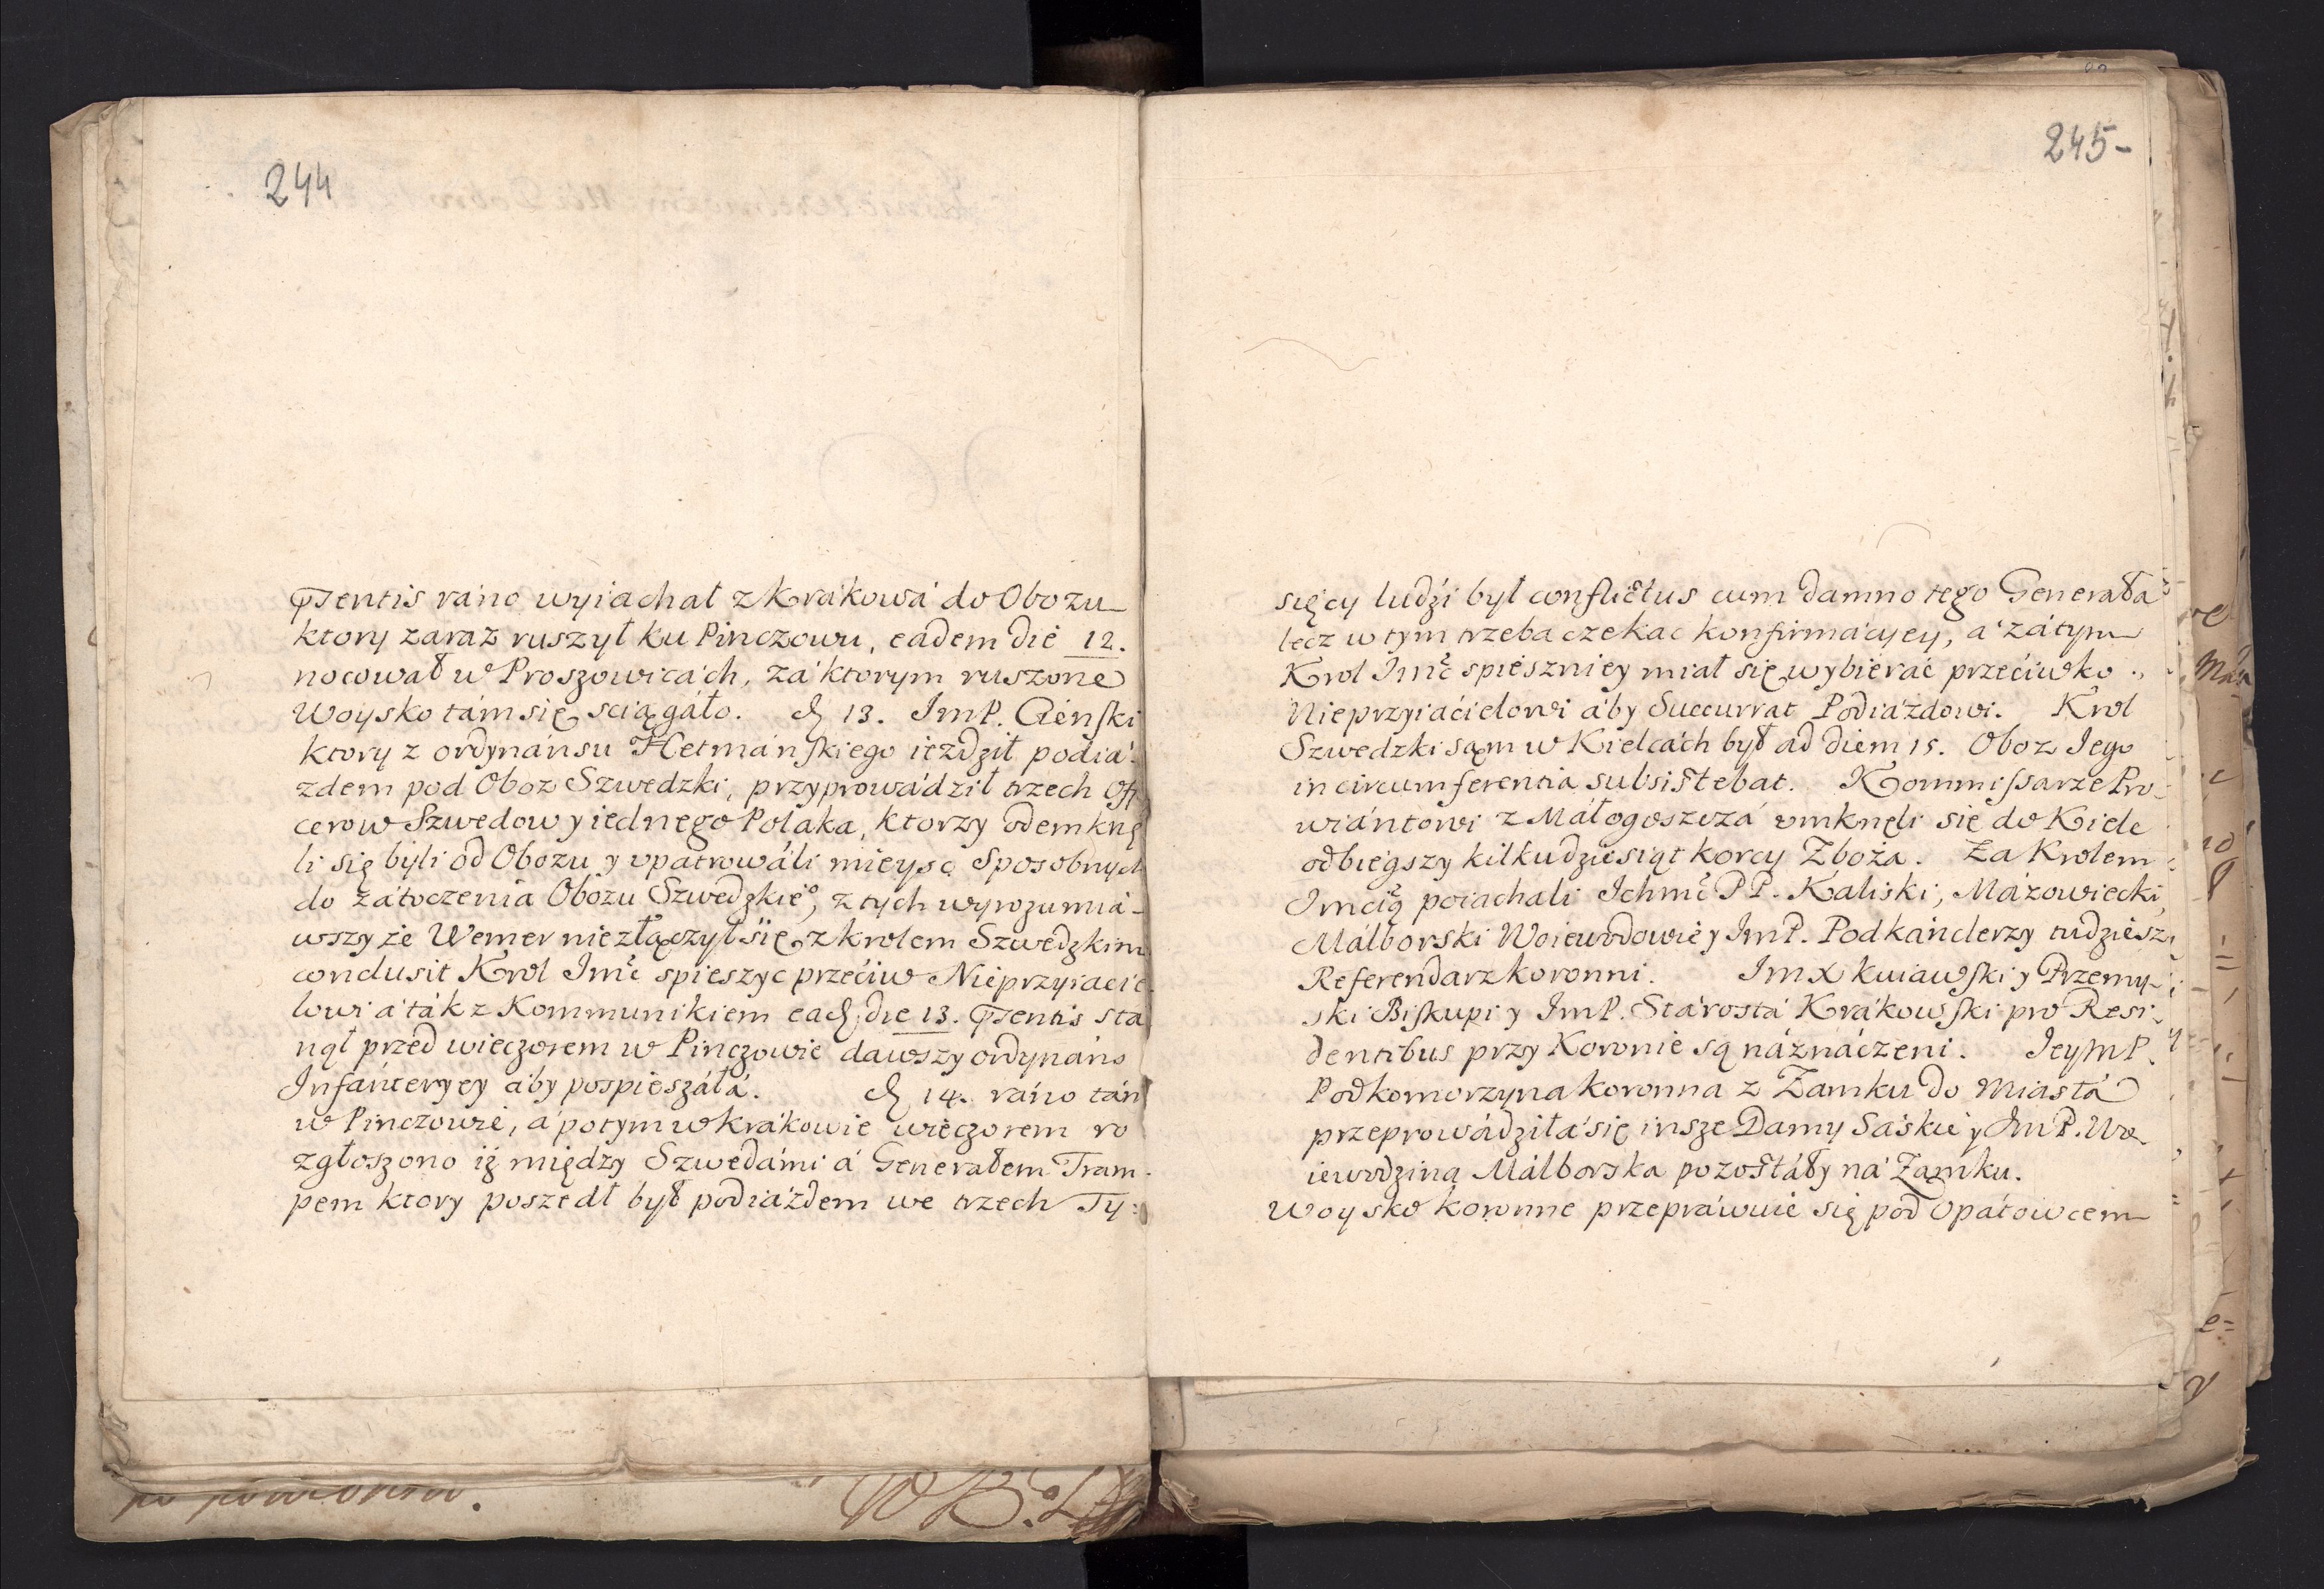 244
Ꝑsentis rano wyiachał z Krakowá do Obozu
ktory zaraz ruszył ku Pinczowu, eadem die 12.
nocował w Proszowicách, zá ktorym ruszone
Woysko tám się sciągáło. d 13. ImP. Cieński
ktory z ordynánsu Hetmáńskiego iezdźił podiá-
zdem pod Oboz Szwedzki, przyprowádźił trzech Offi
cerow Szwedow y iednego Polaka, ktorzy odemknę
li się byli od Obozu y upatrowáli mieysc Sposobnych
do zátoczenia Obozu Szwedzkieo, z tych wyrozumiá-
wszy że Wemer niezłączył się z krolem Szwedzkim
conclusit Krol Imć spieszyc przećiw Nieprzyiacie
lowi a ták z Kommunikiem ead die 13. Ꝑsentis sta
nął przed wieczorem w Pinczowie dawszy ordynáns
Infánteryey áby pospieszáłá. d 14. ráno tám
w Pinczowie, á potym w krákowie wieczorem ro
zgłoszono iż między Szwedámi á Generałem Tram-
pem ktory poszedł był podiázdem we trzech Ty-
po
245-
sięcy ludźi był conflictus cum damno tego Generała
lecz w tym trzeba czekac konfirmácyey, á zátym
Krol Imć spieszniey miał się wybierać przećiwko
Nieprzyiaćielowi áby Succurrat Podiázdowi. Krol
Szwedzki sąm w Kielcách był ad diem 15. Oboz Iego
in circumferentia subsistebat. Kommissarze Pro-
wiántowi z Máłogoszczá umknęli się do Kielc
odbiegszy kilkudziesiąt korcy Zboża. Za Krolem
Imcią poiachali Ichmć PP. Kaliski, Mázowiecki,
Málborski Woiewodowie y ImP. Podkánclerzy tudziesz
Referendarz koronni. ImX kuiawski y Przemy-
ski Biskupi y ImP. Stárostá Krákowski pro Resi-
dentibus przy Koronie są náznáczeni. IeyMP.
Podkomorzyna koronna z Zamku do Miastá
przeprowádźiłá się insze Damy Saskie y ImP. Wo-
iewodzina Málborska pozostáły ná Zamku.
Woysko koronne przepráwuie się pod Opátowcem